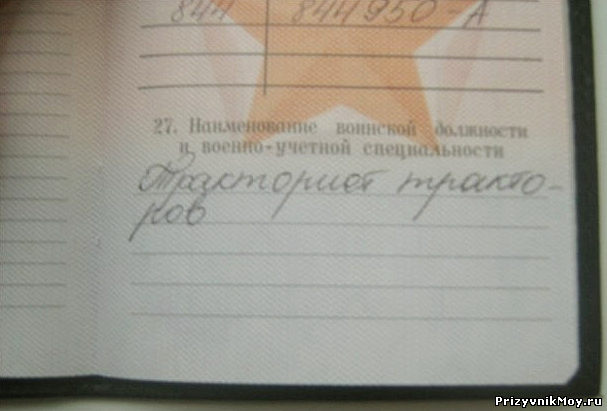 844 844950-А
27. Наименование воинской должности
и военно-учетной специальности
Тракторист тракто-
ров
PrizyvnikMoy.ru